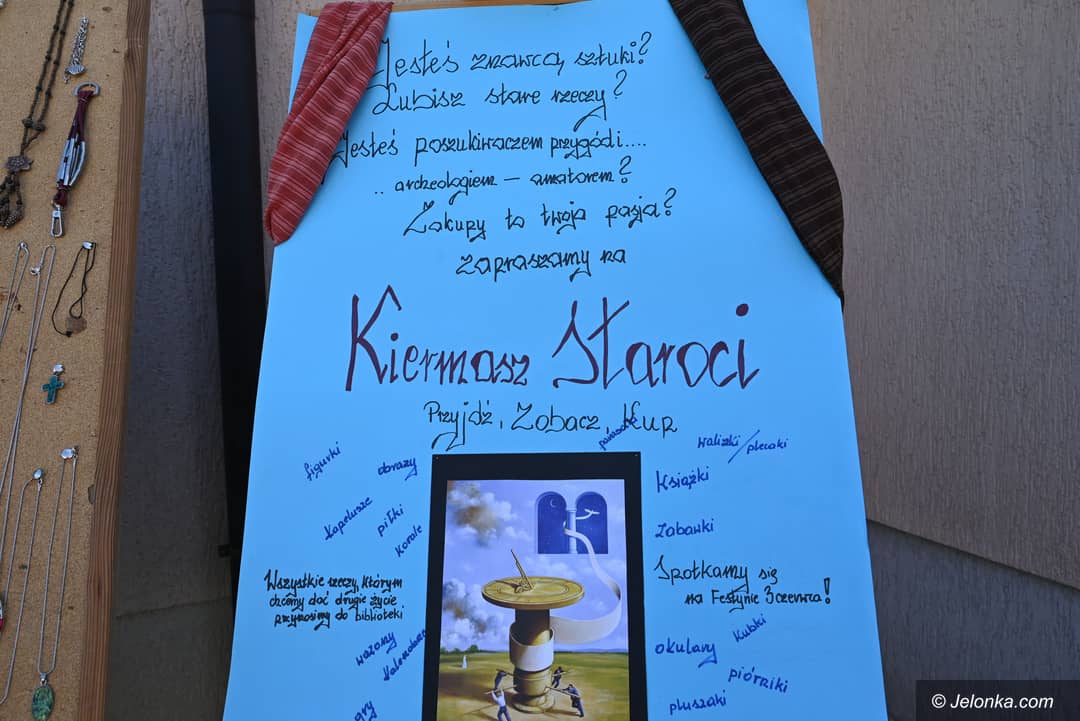 Jesteś znawcą sztuki?
Lubisz stare rzeczy?
Jesteś poszukiwaczem przygódi....
.. archeologiem – amatorem?
Zakupy to twoja pasja?
zapraszamy na
Kiermasz Staroci
Przyjdź, Zobacz, Kup
figurki
obrazy
walizki/plecaki
Książki
kapelusze
piłki
korale
zabawki
Wszystkie rzeczy, którym
chcemy dać drugie życie
przynosimy do biblioteki
Spotkamy się
na Festynie 3 czerwca!
wazony
kubki
okulary
piórniki
pluszaki
gry
© Jelonka.com